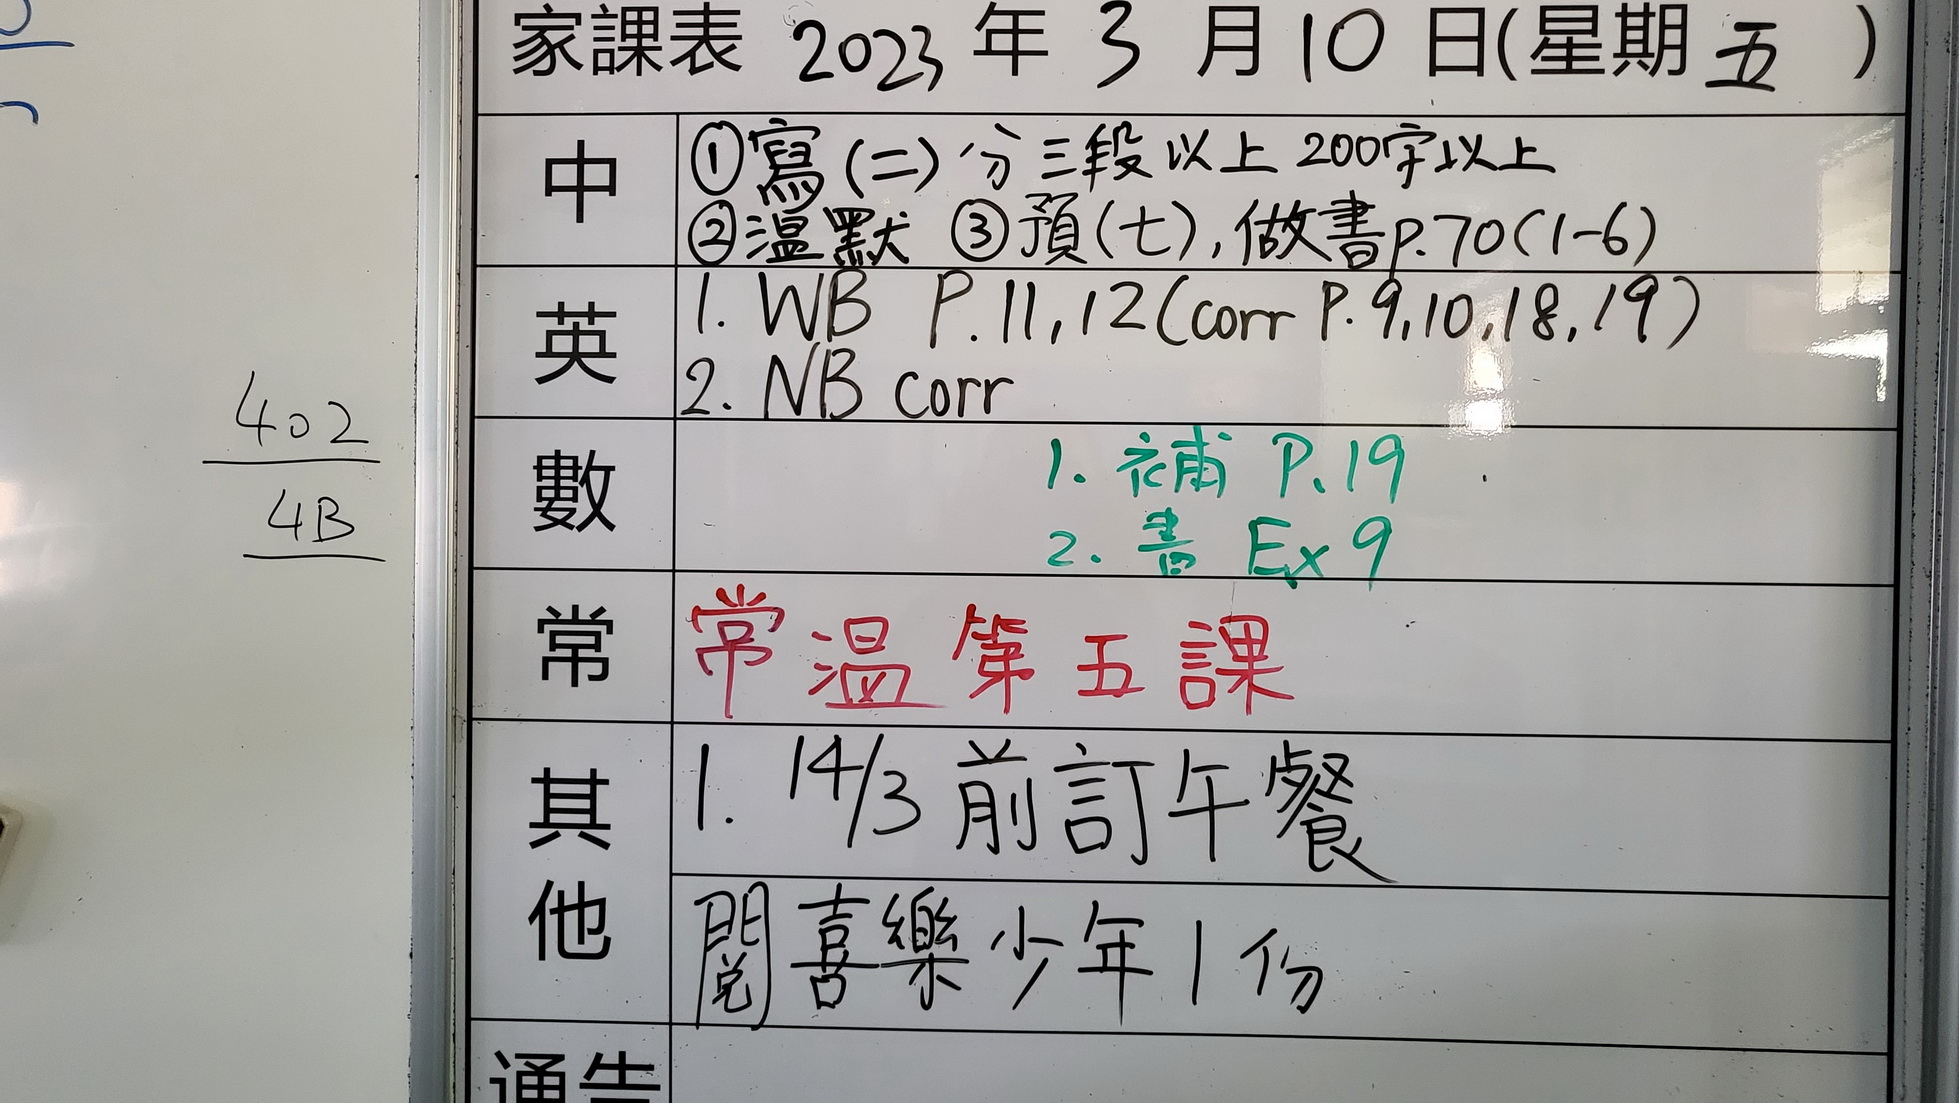 家課表 2023 年 3 月 10 日(星期 五 )
中
①寫(二)分三段以上 200字以上
②溫默 ③預(七),做書p.70(1-6)
英
1. WB P.11,12(corr P.9,10,18,19)
2. NB corr
數
1. 補 P.19
2. 書 Ex 9
常
常溫第五課
其他
1. 14/3前訂午餐
閱喜樂少年1份
通告
402
4B